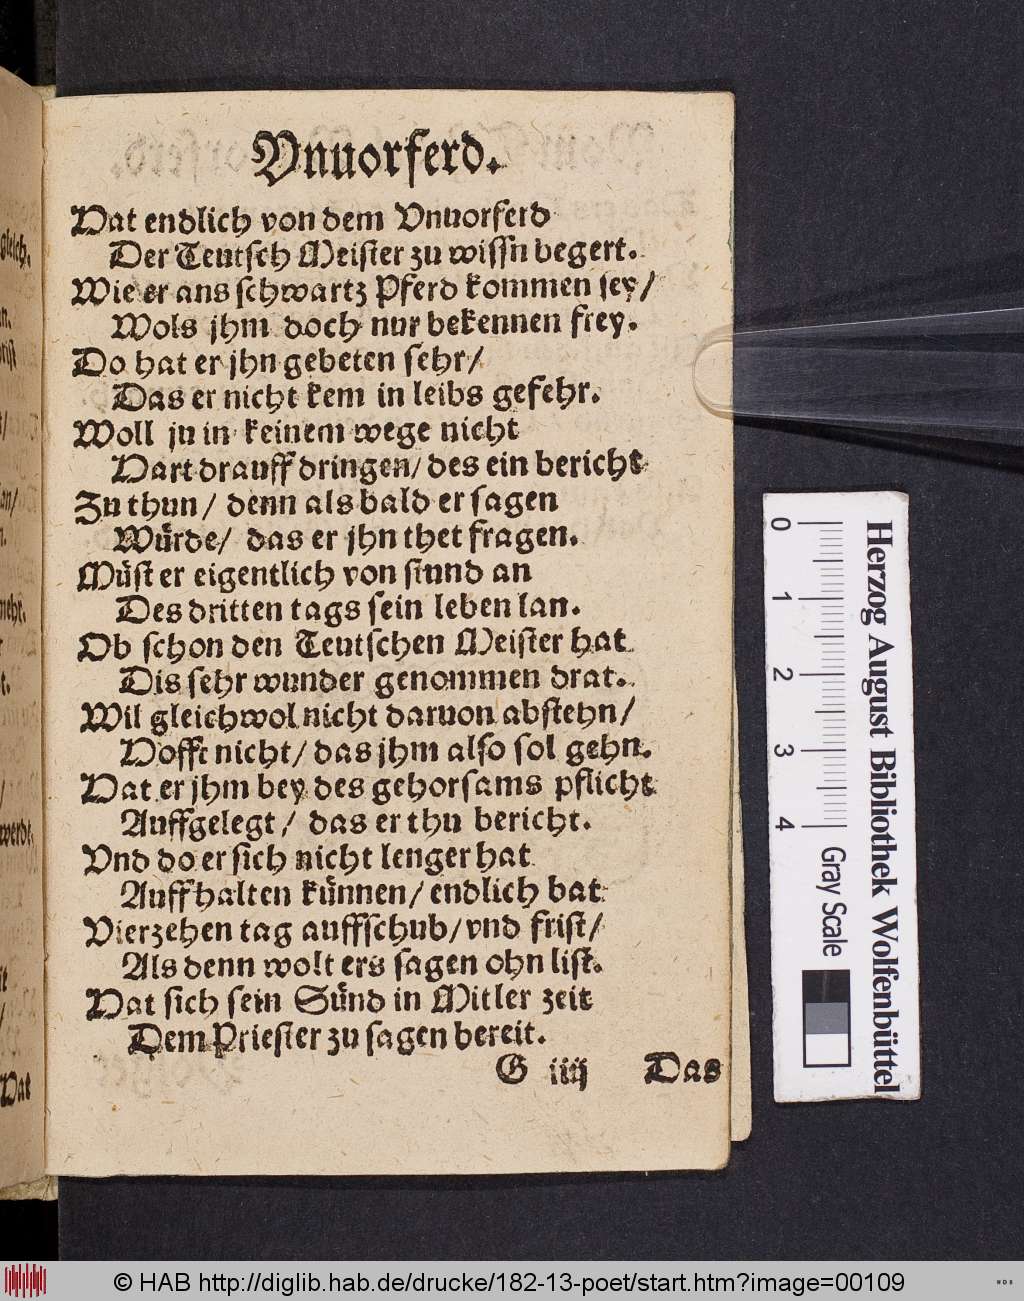 Vnuorferd.
Hat endlich von dem Vnuorferd
Der Teutsch Meister zu wissn begert.
Wie er ans schwartz Pferd kommen sey/
Wols jhm doch nur bekennen frey.
Do hat er jhn gebeten sehr/
Das er nicht kem in leibs gefehr.
Woll ju in keinem wege nicht
Hart drauff dringen/ des ein bericht
Zu thun/ denn als bald er sagen
Würde/ das er jhn thet fragen.
Müst er eigentlich von stund an
Des dritten tags sein leben lan.
Ob schon den Teutschen Meister hat
Dis sehr wunder genommen drat.
Wil gleichwol nicht daruon abstehn/
Hofft nicht/ das jhm also sol gehn.
Hat er jhm bey des gehorsams pflicht
Auffgelegt/ das er thu bericht.
Vnd do er sich nicht lenger hat
Auffhalten künnen/ endlich bat
Vierzehen tag auffschub/ vnd frist/
Als denn wolt ers sagen ohn list.
Hat sich sein Sünd in Mitler zeit
Dem Priester zu sagen bereit.
G iiij Das
gleich.
mehr.
werdt.
Hat
0 1 2 3 4
Gray Scale
Herzog August Bibliothek Wolfenbüttel
© HAB http://diglib.hab.de/drucke/182-13-poet/start.htm?image=00109